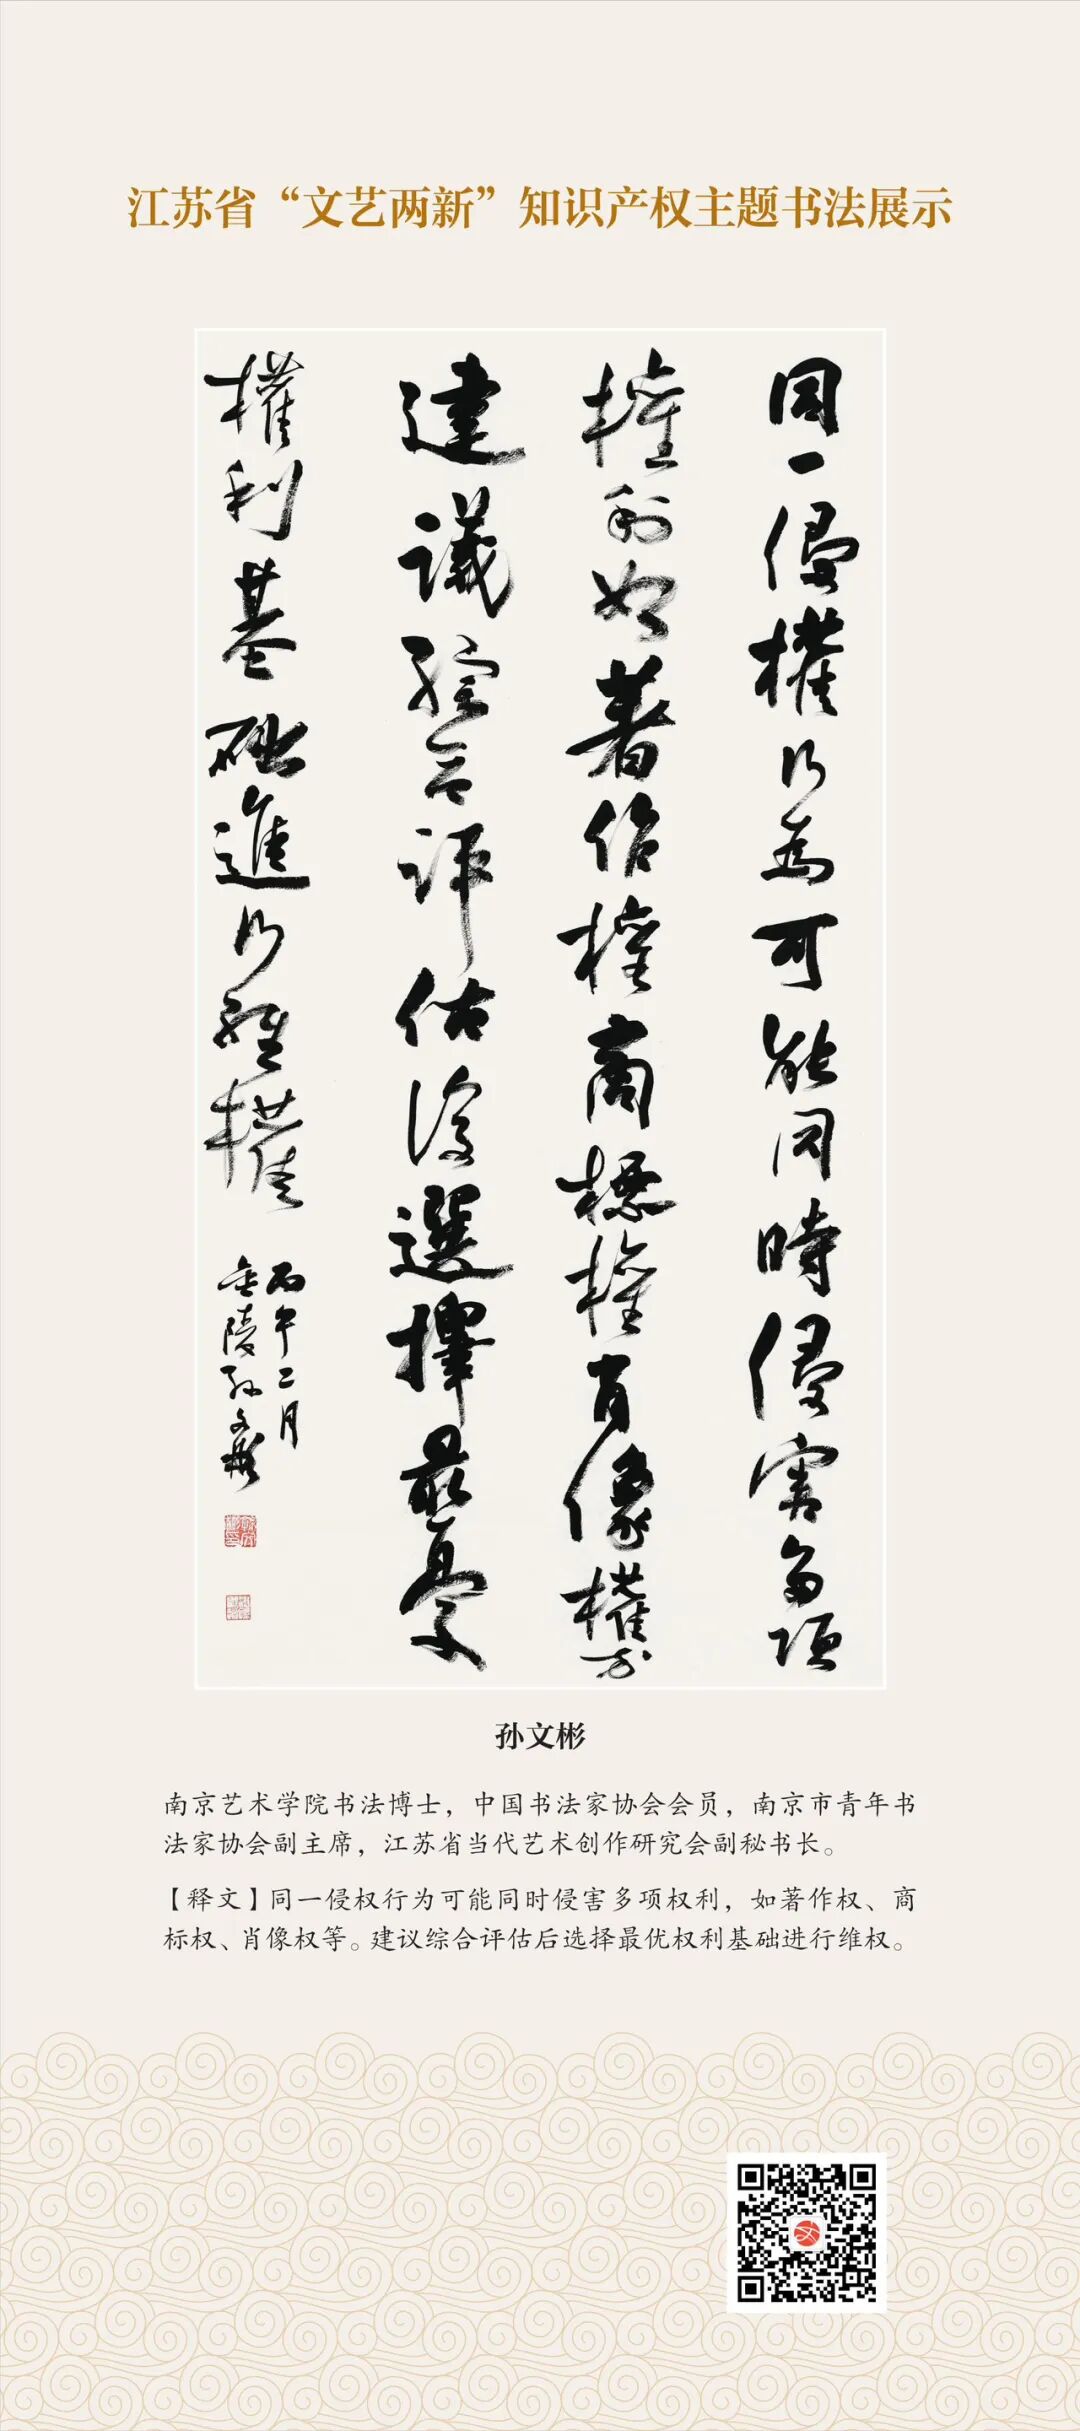 江苏省“文艺两新”知识产权主题书法展示
同一侵權行為可能同時侵害多項
權利如著作權商標權肖像權等
建議綜合評估後選擇最優
權利基礎進行維權
丙午二月
金陵孙文彬
孙文彬
南京艺术学院书法博士，中国书法家协会会员，南京市青年书
法家协会副主席，江苏省当代艺术创作研究会副秘书长。
【释文】同一侵权行为可能同时侵害多项权利，如著作权、商
标权、肖像权等。建议综合评估后选择最优权利基础进行维权。